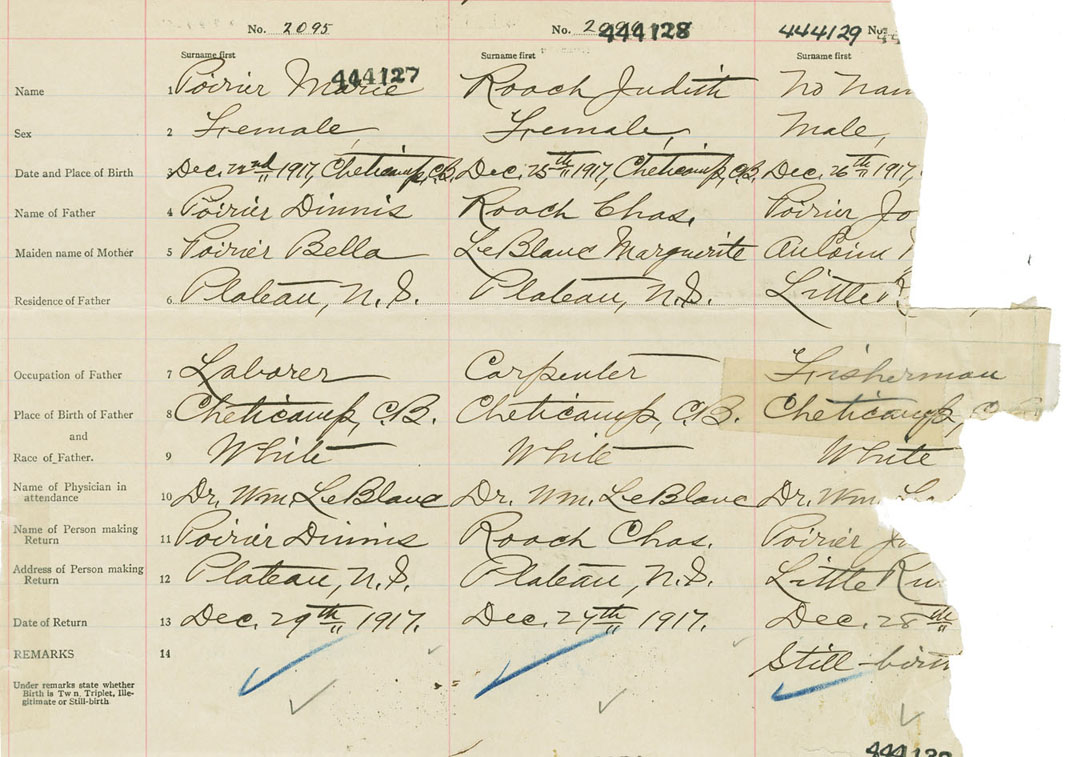 No. 2095 No. 444128 444129 No.
Surname first Surname first Surname first
444127
Name 1 Poirier Marie Roach Judith No Nam
Sex 2 Female Female, Male,
Date and Place of Birth 3 Dec. 22nd 1917, Cheticamp, C.B. Dec. 25th 1917, Cheticamp, C.B. Dec. 26th 1917,
Name of Father 4 Poirier Dinnis Roach Chas. Poirier Jo
Maiden name of Mother 5 Poirier Bella LeBlanc Marguerite
Residence of Father 6 Plateau, N.S. Plateau, N.S. Little R
Occupation of Father 7 Laborer Carpenter Fisherman
Place of Birth of Father 8 Cheticamp, C.B. Cheticamp, C.B. Cheticamp, C
and
Race of Father. 9 White White White
Name of Physician in
attendance 10 Dr. Wm. LeBlanc Dr. Wm. LeBlanc Dr. Wm.
Name of Person making
Return 11 Poirier Dinnis Roach Chas. Poirier Jo
Address of Person making
Return 12 Plateau, N.S. Plateau, N.S. Little Riv
Date of Return 13 Dec. 29th 1917. Dec. 27th 1917. Dec. 28th
REMARKS 14 Still-birth
Under remarks state whether
Birth is Twn, Triplet, Ille-
gitimate or Still-birth